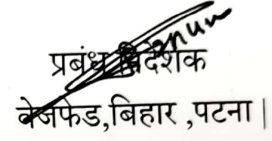 प्रबंध निदेशक
वेजफेड,बिहार ,पटना |